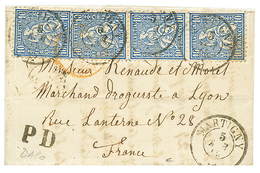 Monsieur Renaud et Morel
Marchand drogueste a Lyon
Rue Lanterne N° 28
France
PD
MARTIGNY
5